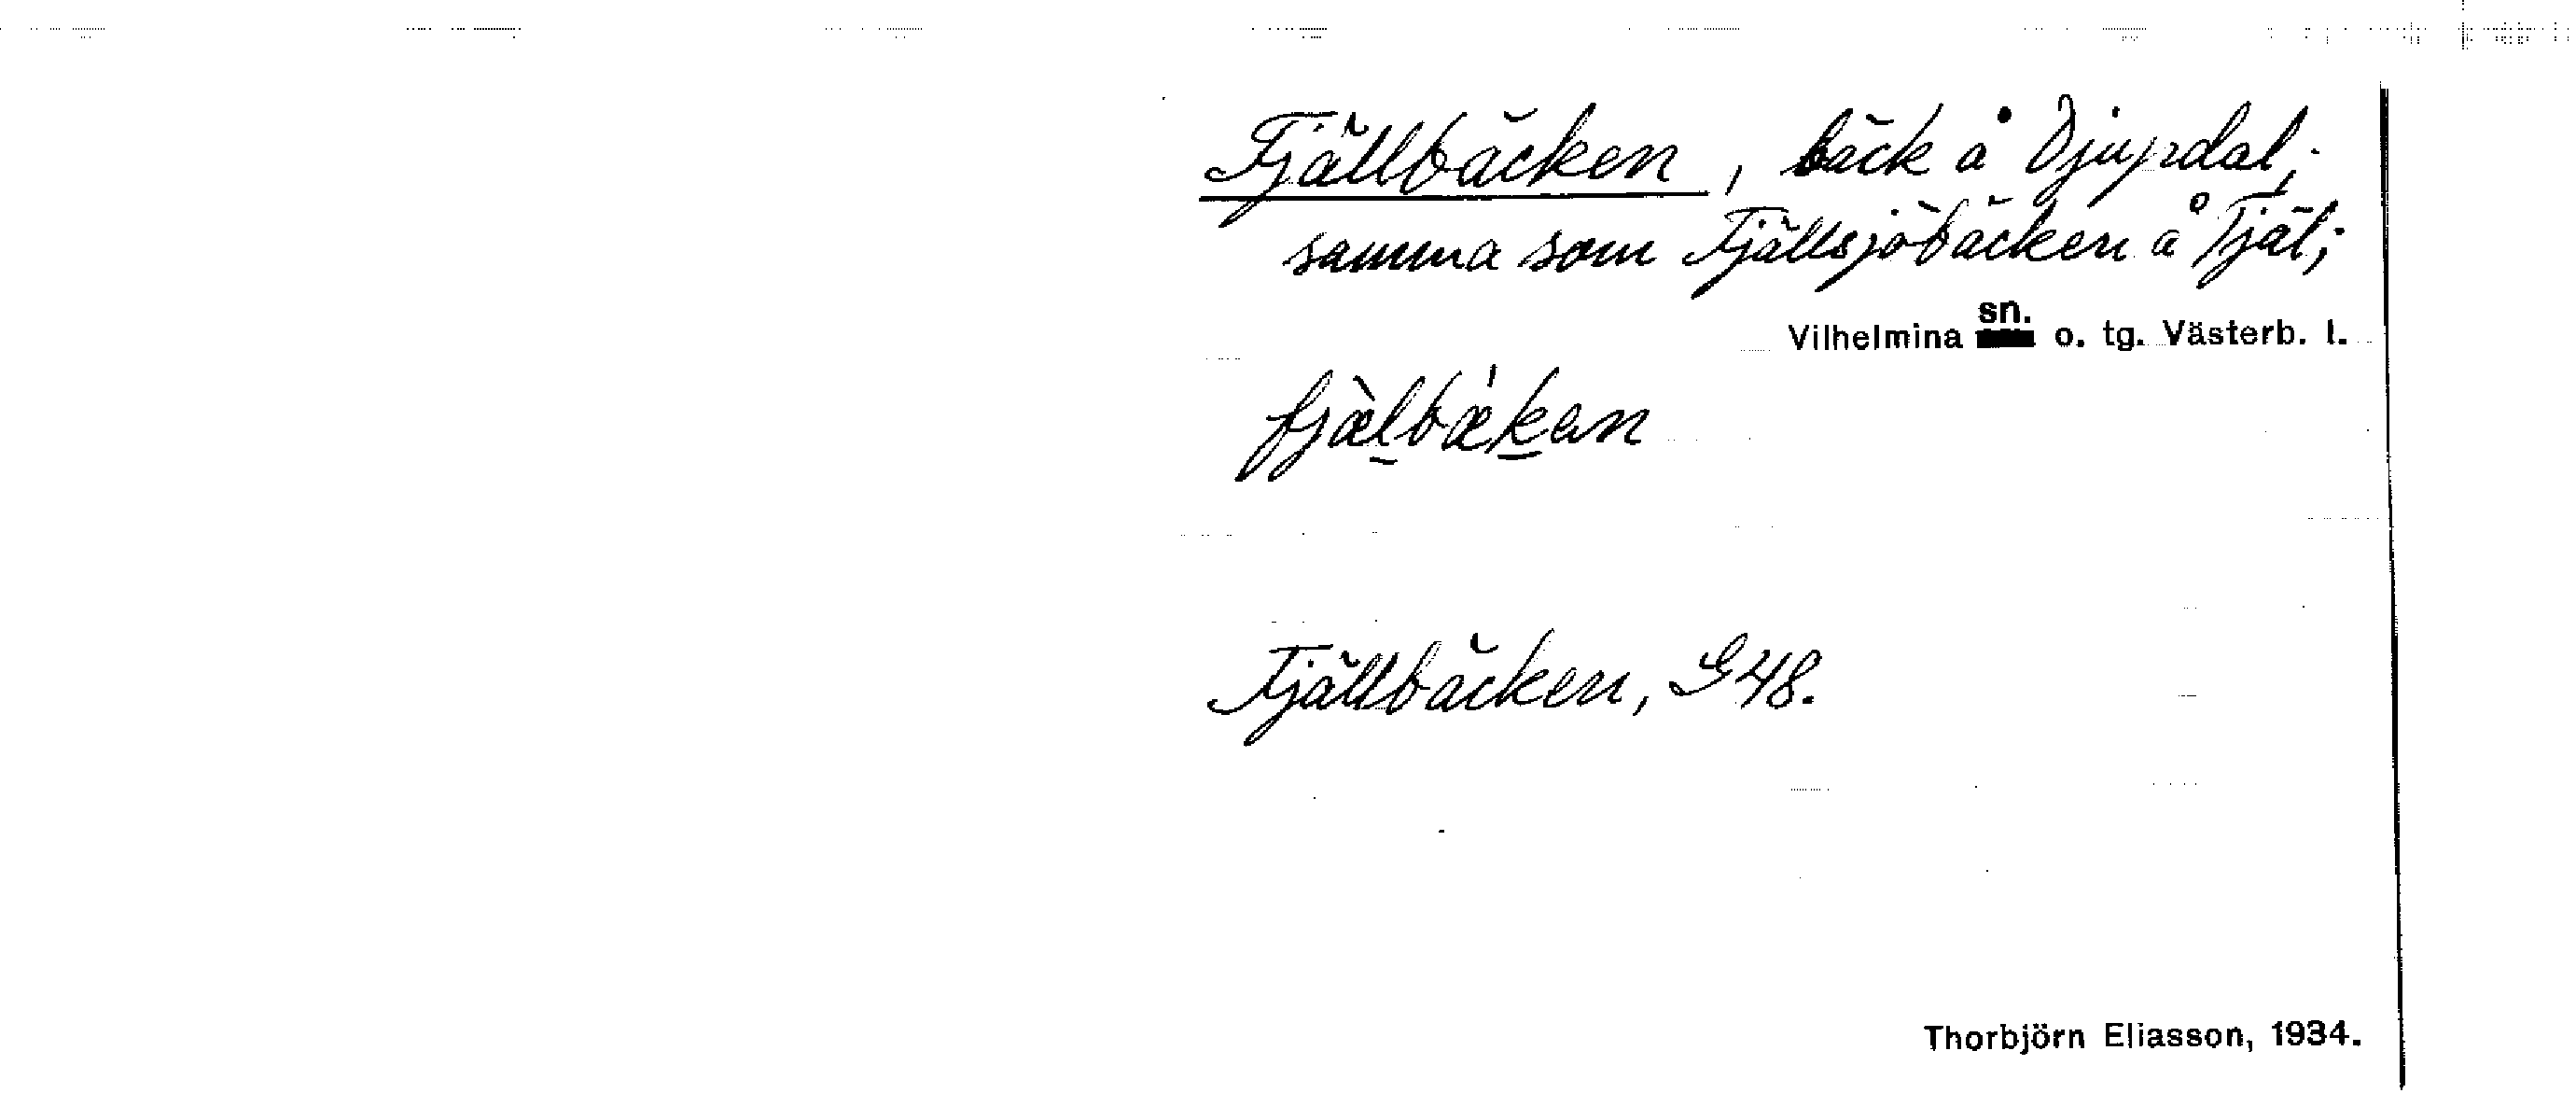 Fjällbäcken, bäck å Djupdal;
samma som Fjällsjöbäcken å Tjäl;
Vilhelmina sn. o. tg. Västerb. l.
fjæ̀lbæ̍kan
Fjällbäcken, G48.
Thorbjörn Eliasson, 1934.